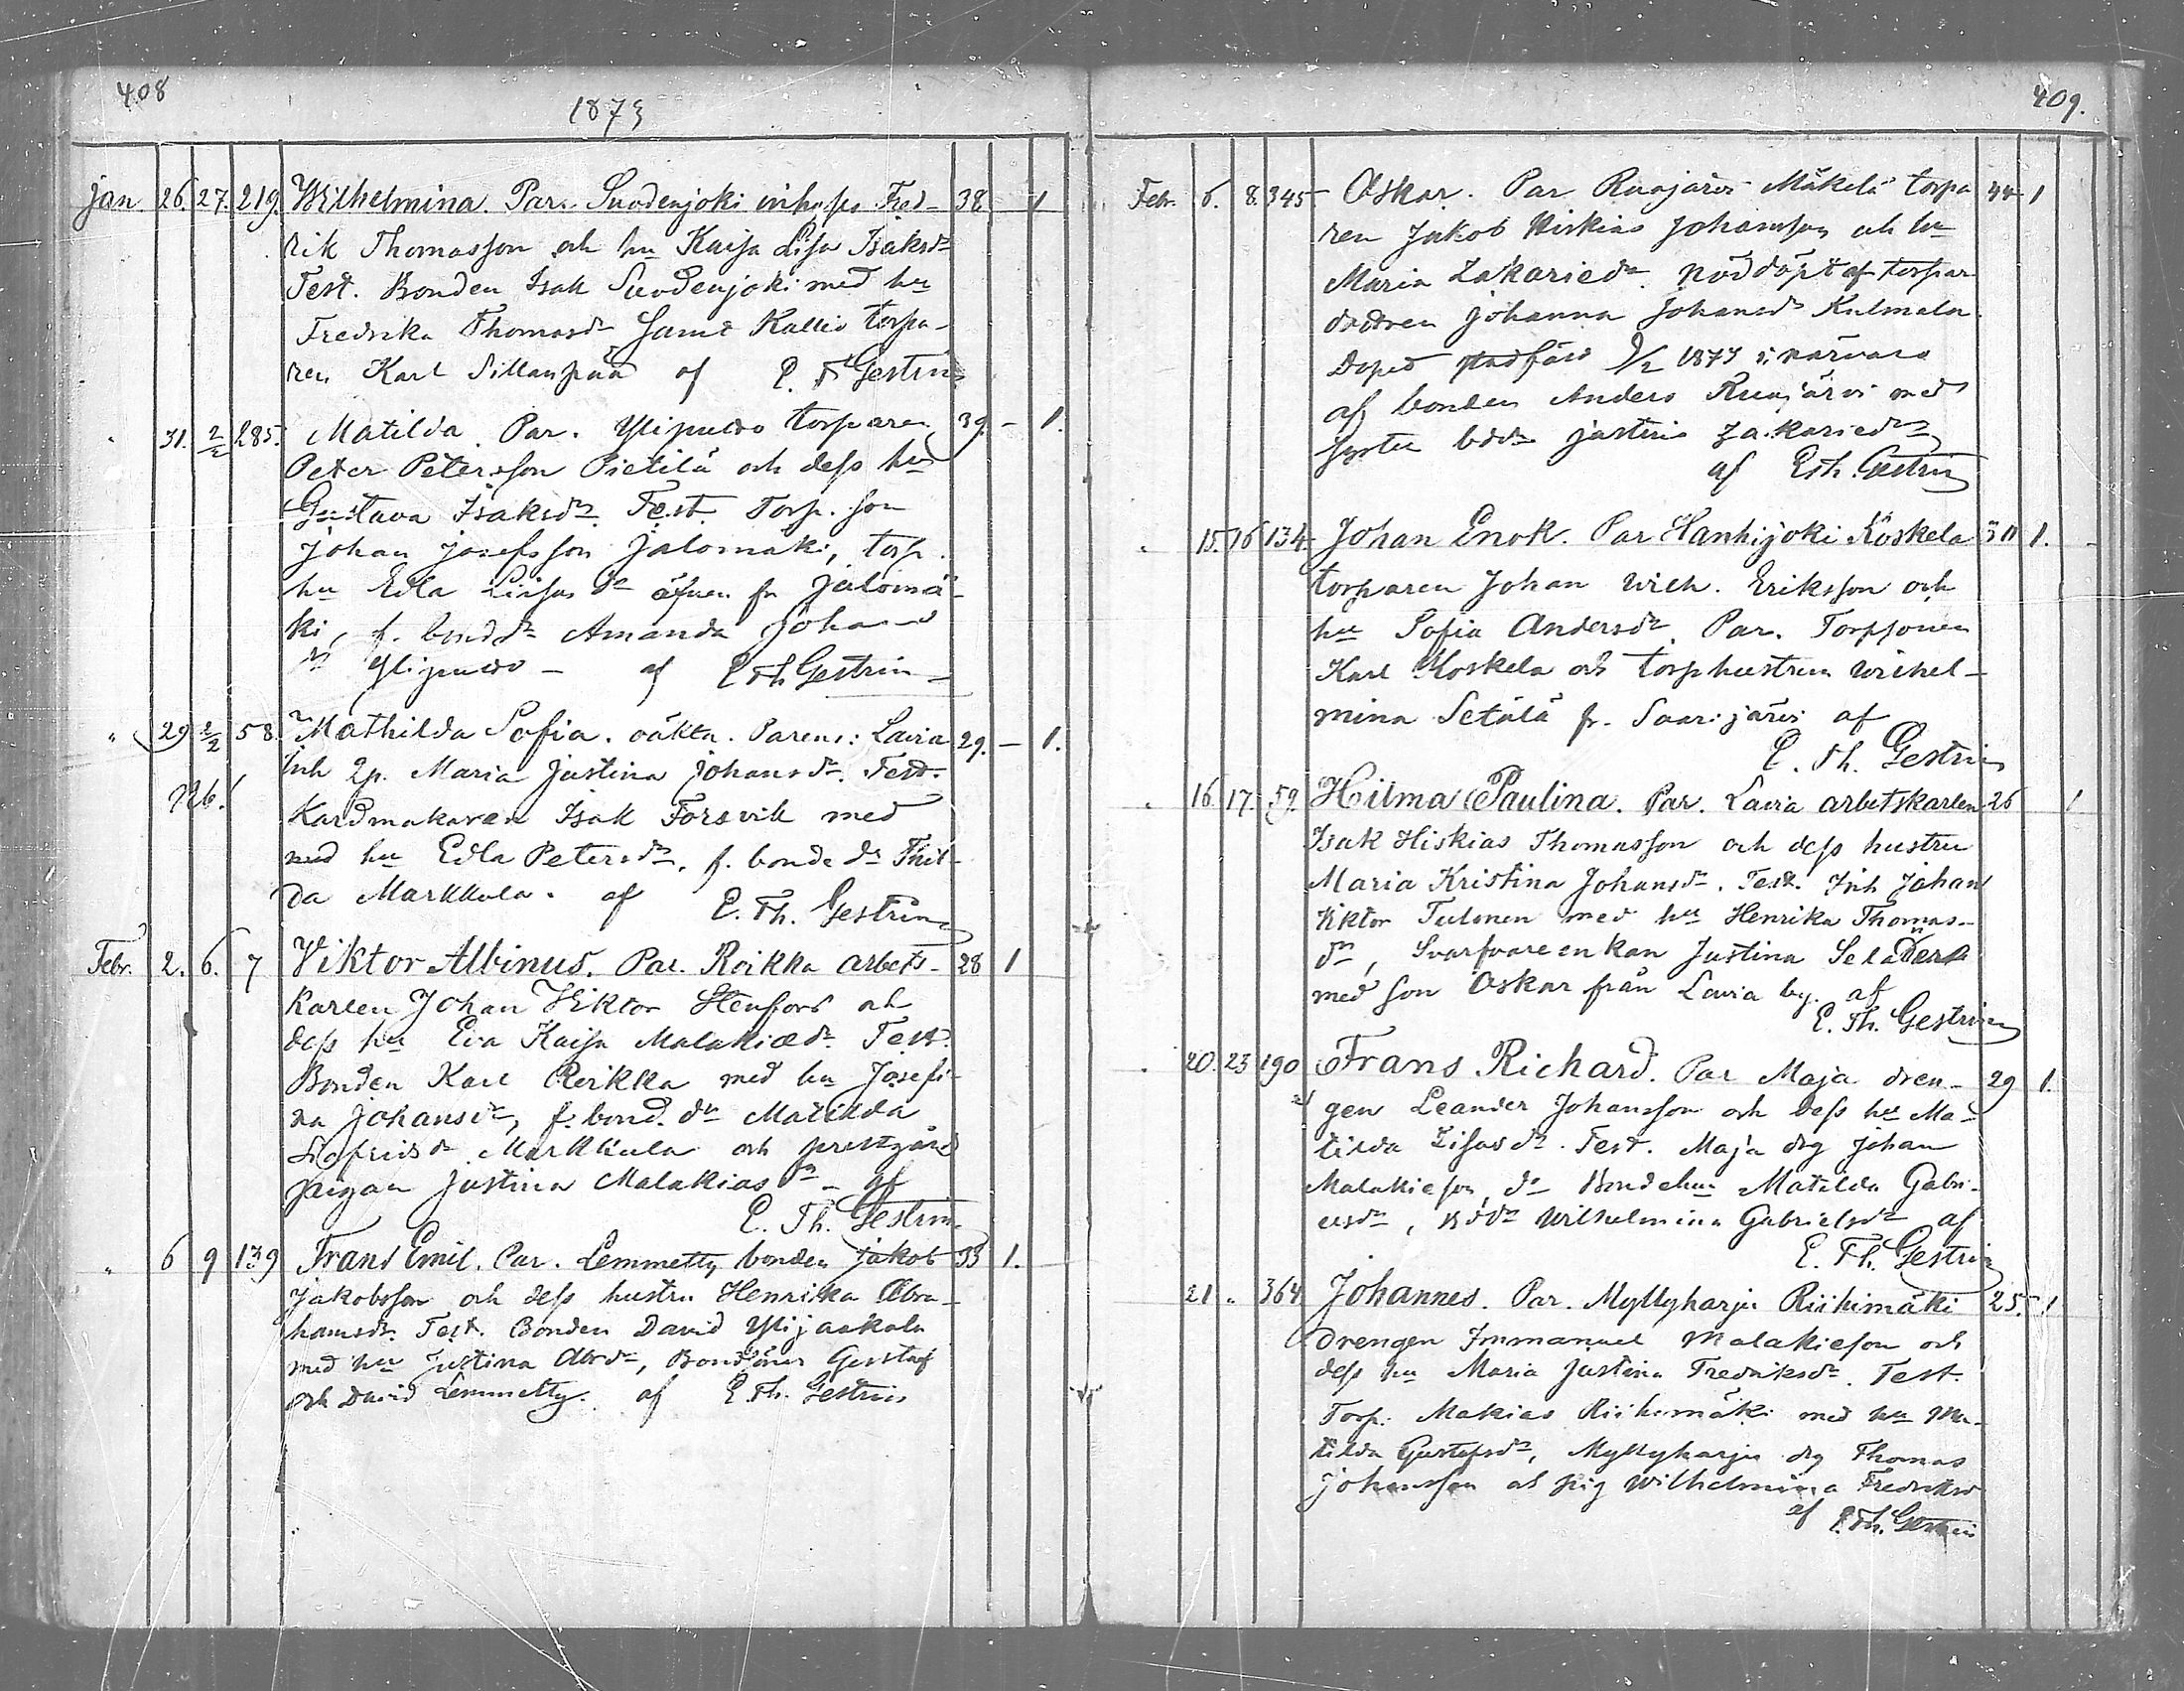 408
1873
Jan. 26. 27. 219. Wilhelmina. Par. Suodenjoki inhyses Fred- 38 – 1
rik Thomasson och hu Kaisa Lisa Isaksdr
Test. Bonden Isak Suodenjoki med hu
Fredrika Thomasdr samt Kallio torpa-
ren Karl Sillanpää af E. Th Gestrin
" 31. 2/2 285. Matilda. Par. Ylipulso torparen 39. – 1.
Peter Petersson Pietilä och dess hu
Gustava Isaksdr. Test. Torp. son
Johan Josefsson Jalomäki, torp.
hu Edla Liisas dr äfven fr Jalomä-
ki, f. bonddr Amanda Johans
dr – af E Th Gestrin –
" 29 2/2 58. Mathilda Sofia. oäkta. Parens: Lavia 29. – 1.
Inh Qp. Maria Justina Johansdr. Test.
N6.! Kardmakaren Isak Forsvik med
med hu Edla Petersdr, f. bonde dr Thil-
da Markkula. af E. Th. Gestrin
Febr. 2. 6. 7 Viktor Albinus. Par. Roikka arbets- 28 1
karlen Johan Viktor Stenfors och
dess hu Eva Kaisa Malakiaedr. Test.
Bonden Karl Reikka med hu Josefi-
na Johansdr, f. bond. dr Matilda
Markkula och prestgårds
pigan Justina Malakiasdr – af
E. Th. Gestrin
" 6 9 139 Frans Emil. Par. Lemmetty bonden Jakob 33 1.
Jakobsson och dess hustru Henrika Abra-
hamsdr. Test. Bonden David Ylijaakala
med hu Justina Abrdr, Bondesöner Gustaf
och David Lemmetty. af E Th. Gestrin
409.
Febr. 6. 8. 345 Oskar. Par Ruojärvi Mäkelä torpa 44 1
ren Jakob Hiskias Johansson och hu
Maria Zakariedr. nöddöpt af torpar
Johanna Johansdr Kulmala
Doped 9/2 1873 i närvaro
af bonden Anders Ruojärvi med
syster bddr Justina Zakariedr
af E Th. Gestrin
" 15. 16 134. Johan Enok. Par Hanhijoki Koskela 30 1.
torparen Johan Wilh. Eriksson och
hu Sofia Andersdr. Par. Torpsonen
Karl Koskela och torphustrun Wilhel-
mina Setälä fr. Saarijärvi af
E. Th. Gestrin
" 16. 17. 59. Hilma Paulina. Par. Lavia arbetskarlen 26 1
Isak Hiskias Thomasson och dess hustru
Maria Kristina Johansdr. Test. Inh Johan
Viktor Tulonen med hu Henrika Thomas-
dr, Svarfvareenkan Justina Seländer
med son Oskar från Lavia by. af
E. Th. Gestrin
" 20. 23 190 Frans Richard. Par Maja dren- 29 1.
gen Leander Johansson och dess hu Ma-
tilda Lisasdr. Test. Maja drg Johan
Malakiesson, do Bondehu Matilda Gabri-
elsdr, Bddr Wilhelmina Gabrielsdr af
E. Th. Gestrin
21 " 364 Johannes. Par. Myllyharju Riihimäki 25. 1
drengen Immanuel Malakieson och
dess hu Maria Justina Fredriksdr. Test.
Torp. Makias Riihimäki med hu Ma-
tilda Gustafsdr, Myllyharju drg Thomas
Johansson och pig Wilhelmina Fredriksd
af E. Th. Gestrin